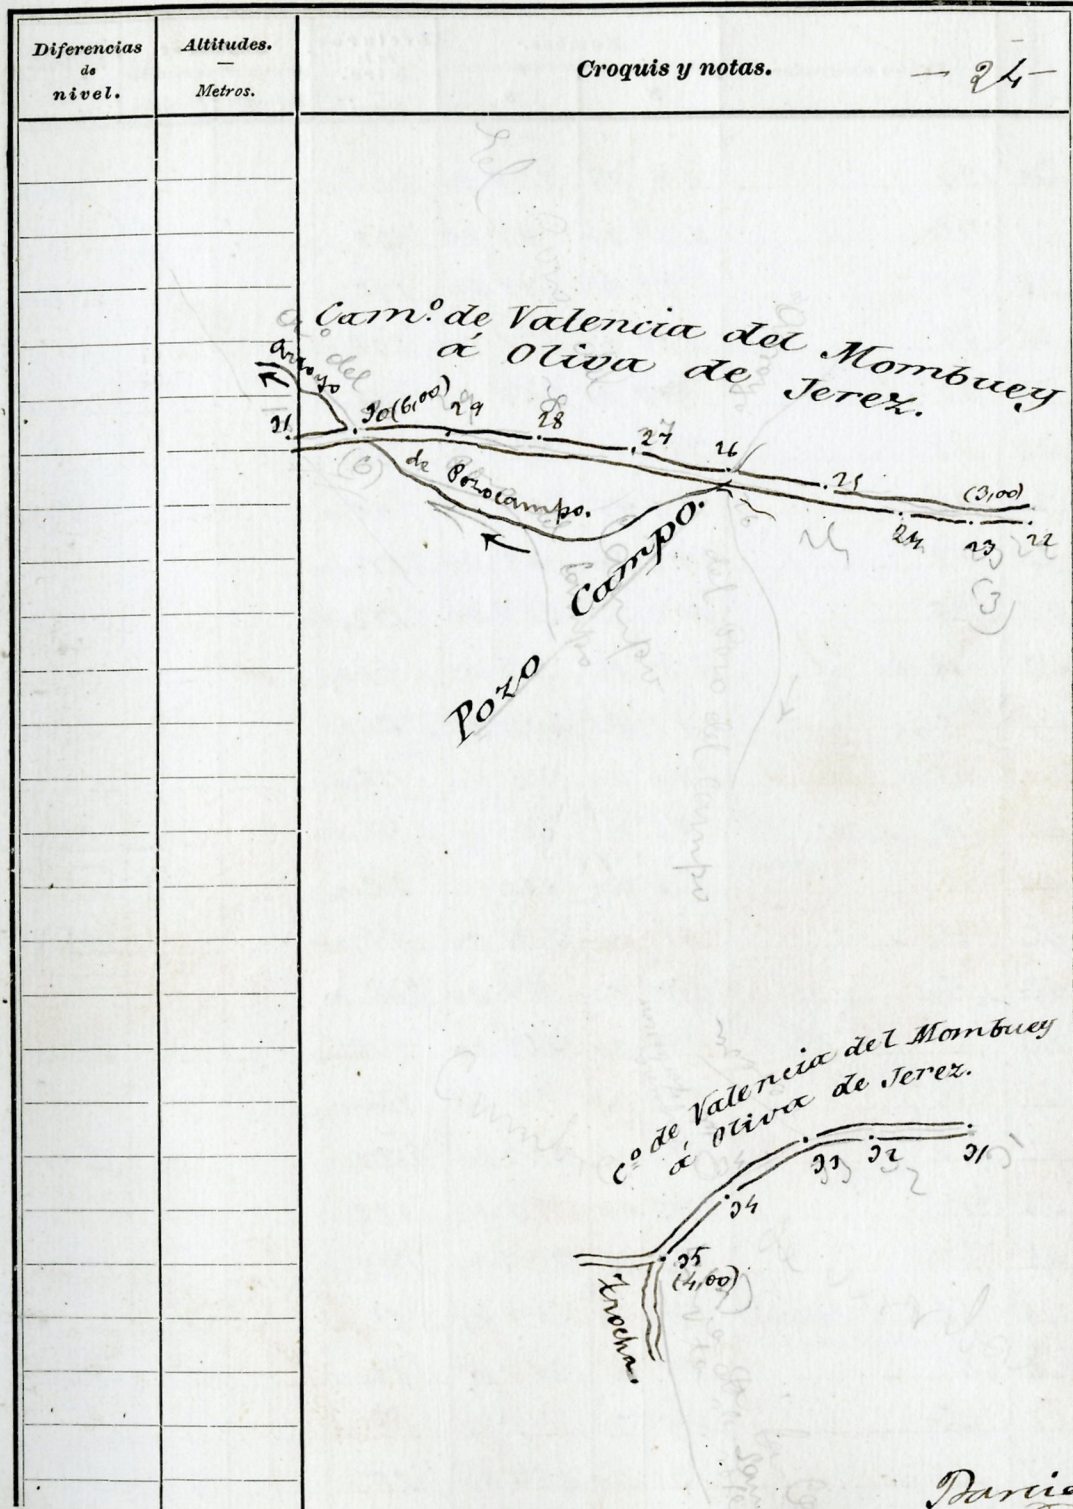 Diferencias
de
nivel.
Altitudes.
Metros.
Croquis y notas.
— 24 —
Cam.º de Valencia del Mombuey
á Oliva de Jerez.
Arroyo
31
30(6,00)
29
28
27
26
25
(3,00)
24
23
22
de Pozocampo.
Pozo Campo.
Cº de Valencia del Mombuey
á Oliva de Jerez.
33
32
31
34
35
(4,00)
Trocha.